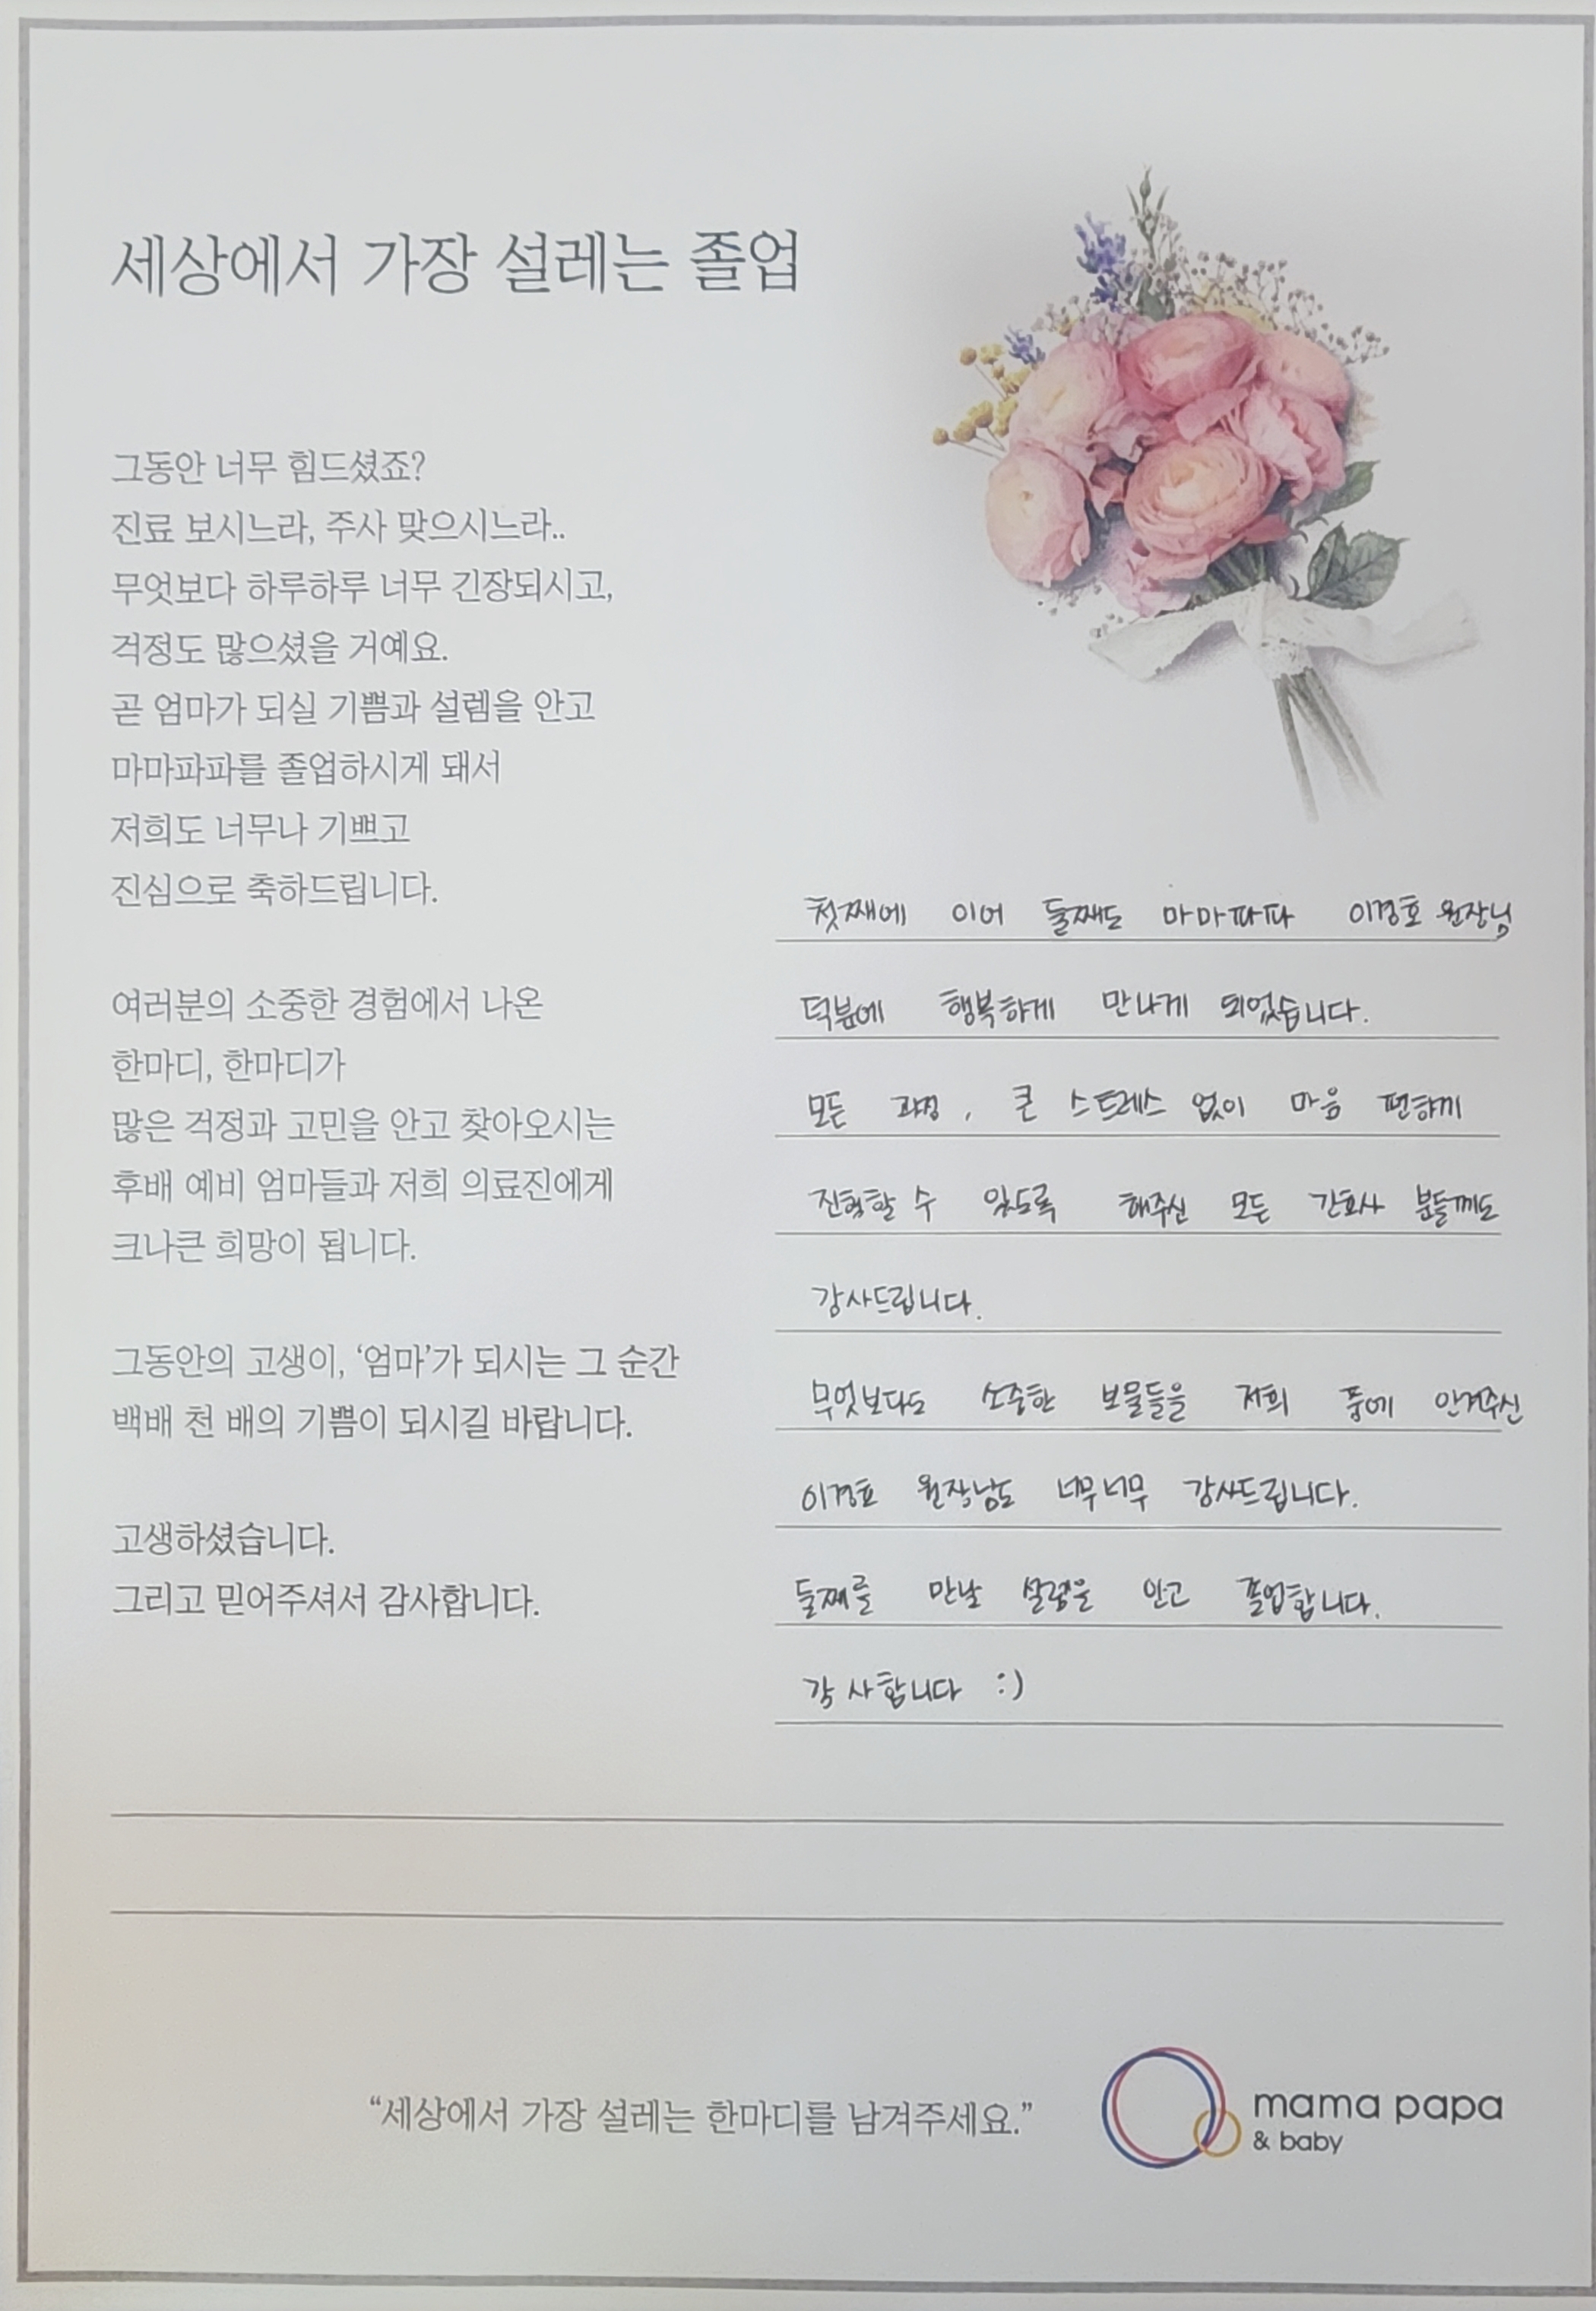 세상에서 가장 설레는 졸업
그동안 너무 힘드셨죠?
진료 보시느라, 주사 맞으시느라..
무엇보다 하루하루 너무 긴장되시고,
걱정도 많으셨을 거예요.
곧 엄마가 되실 기쁨과 설렘을 안고
마마파파를 졸업하시게 돼서
저희도 너무나 기쁘고
진심으로 축하드립니다.
여러분의 소중한 경험에서 나온
한마디, 한마디가
많은 걱정과 고민을 안고 찾아오시는
후배 예비 엄마들과 저희 의료진에게
크나큰 희망이 됩니다.
그동안의 고생이, ‘엄마’가 되시는 그 순간
백배 천 배의 기쁨이 되시길 바랍니다.
고생하셨습니다.
그리고 믿어주셔서 감사합니다.
첫째에 이어 둘째도 마마파파 이경호 원장님
덕분에 행복하게 만나게 되었습니다.
모든 과정, 큰 스트레스 없이 마음 편하게
진행할 수 있도록 해주신 모든 간호사 분들께도
감사드립니다.
무엇보다도 소중한 보물들을 저희 품에 안겨주신
이경호 원장님도 너무너무 감사드립니다.
둘째를 만날 설렘을 안고 졸업합니다.
감사합니다 :)
“세상에서 가장 설레는 한마디를 남겨주세요.”
mama papa
& baby